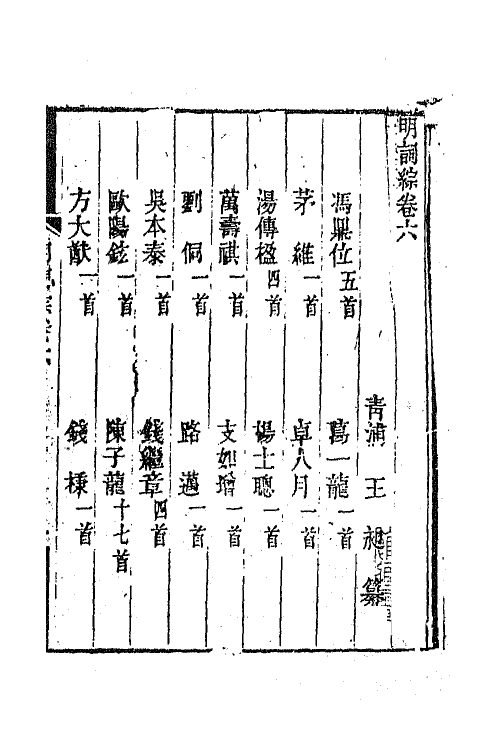 明詞綜卷六
青浦 王 昶 纂
馮鼎位五首 葛一龍一首
茅 維一首 卓人月一首
湯傳楹四首 楊士聰一首
萬壽祺一首 支如璔一首
劉 侗一首 路 邁一首
吳本泰一首 錢繼章四首
歐陽鉉一首 陳子龍十七首
方大猷一首 錢 棅一首